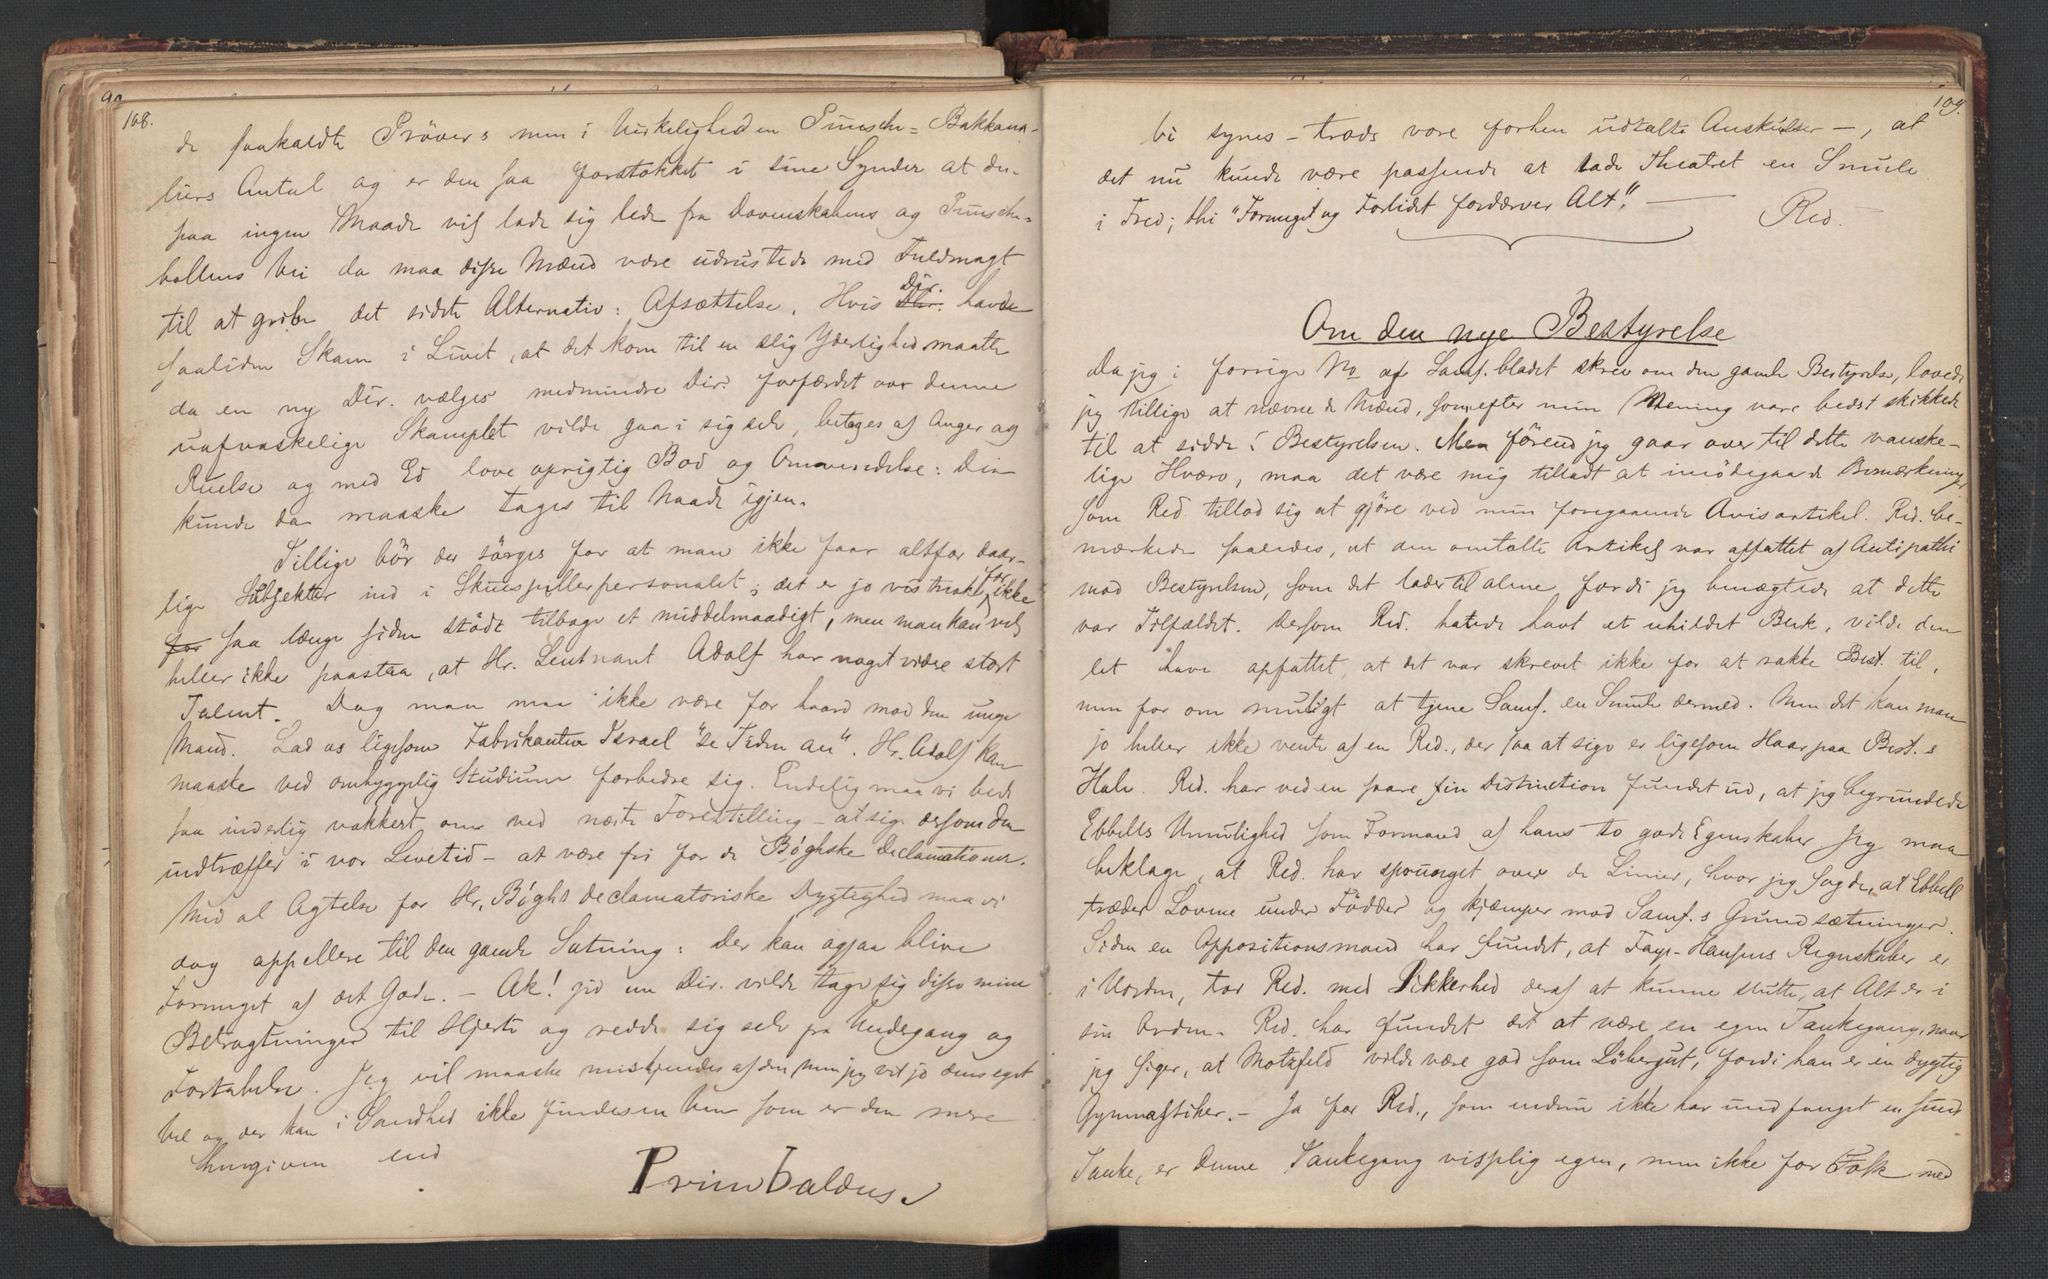 108.
de saakaldte Prøver, men i Virkeligheden Punsche-Bakkana-
liers Antal og er den saa forstokket i sine Synder at den
paa ingen Maade vil lade sig lede fra Dovenskabens og Punsche-
bollens Vei da maa disse Mænd være udrustede med Fuldmagt
til at gribe det sidste Alternativ: Afsættelse. Hvis Dir. havde
saaliden Skam i Livet, at det kom til en slig Yderlighed maatte
da en ny Dir. vælges medmindre Dir. forfærdet over denne
uafvaskelige Skamplet vilde gaa i sig selv, betages af Anger og
Ruelse og med Ed love oprigtig Bod og Omvendelse: Den
kunde da maaske tages til Naade igjen.
Tillige bør der sørges for at man ikke faar altfor daar-
lige Subjekter ind i Skuespillerpersonalet; det er jo vistnok for ikke
saa længe siden stødt tilbage et middelmaadigt, men man kan vel
heller ikke paastaa, at Hr. Leutnant Adolf har noget videre stort
Talent. Dog man maa ikke være for haard mod den unge
Mand. Lad os ligesom Fabrikanten Israel "se Tiden an". Hr. Adolf kan
maaske ved omhyggelig Studium forbedre sig. Endelig maa vi bede
saa inderlig vakkert om ved næste Forestilling - at sige dersom den
indtræffer i vor Levetid - at være fri for de Bøghske Declamationer.
Med al Agtelse for Hr. Bøghs declamatoriske Dygtighed maa vi
dog appellere til den gamle Sætning: Der kan ogsaa blive
Formeget af det Gode. - Ak! gid nu Dir. vilde tage sig disse mine
Betragtninger til Hjerte og redde sig selv fra Undergang og
Fortabelse. Jeg vil maaske miskjendes af den men jeg vil jo dens eget
Vel og der kan i Sandhed ikke findes en Ven som er den mere
hengiven end
Primbaldus.
109.
Vi synes - trods vore forhen udtalte Anskuelser -, at
det nu kunde være passende at lade Theatret en Smule
i Fred; thi "Formeget og Forlidet fordærver Alt".
Red.
Om den nye Bestyrelse
Da jeg i forrige No af Samf. bladet skrev om den gamle Bestyrelse, lovede
jeg tillige at nævne de Mænd, som efter min Mening vare bedst skikkede
til at sidde i Bestyrelsen. Men førend jeg gaar over til dette vanske-
lige Hverv, maa det være mig tilladt at imødegaa de Bemærkninger
som Red. tillod sig at gjøre ved min foregaaende Avisartikel. Red. be-
mærkede saaledes, at den omtalte Artikel var affattet af Antipathi
mod Bestyrelsen, som det lader til alene fordi jeg benægtede at dette
var Tilfældet. Dersom Red. havde havt et uhildet Blik, vilde den
let have opfattet, at det var skrevet ikke for at rakke Best. til,
men for om muligt at tjene Samf. en Smule dermed. Men det kan man
jo heller ikke vente af en Red., der saa at sige er ligesom Haar paa Best.s
Hale. Red. har ved en saare fin Distinction fundet ud, at jeg begrundede
Ebbells Umulighed som Formand af hans to gode Egenskaber. Jeg maa
beklage, at Red. har sprunget over de Linier, hvor jeg sagde, at Ebbell
træder Lovene under Fødder og kjæmper mod Samf.s Grundsætninger.
Siden en Oppositionsmand har fundet, at Faye-Hansens Regnskaber er
i Uorden, tør Red. med Sikkerhed deraf at kunne slutte, at Alt er i
sin Orden. Red. har fundet det at være en egen Tankegang, naar
jeg siger, at Motzfeld vilde være god som Løbergut, fordi han er en dygtig
Gymnastiker. - Ja for Red., som endnu ikke har undfanget en sund
Tanke, er denne Tankegang visselig egen, men ikke for Folk med